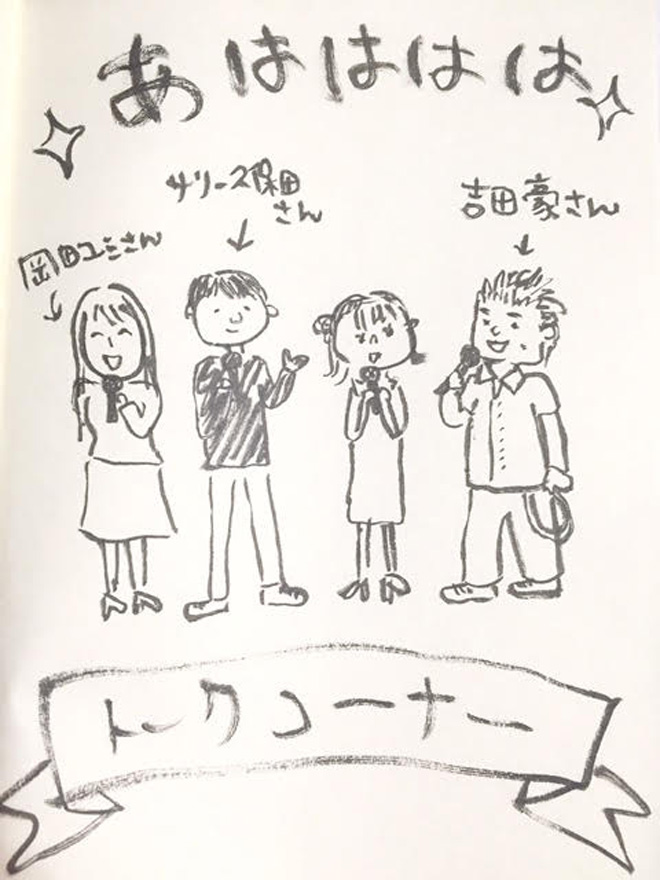 あはははは
サリー久保田
さん
吉田豪さん
岡田ユミさん
トークコーナー